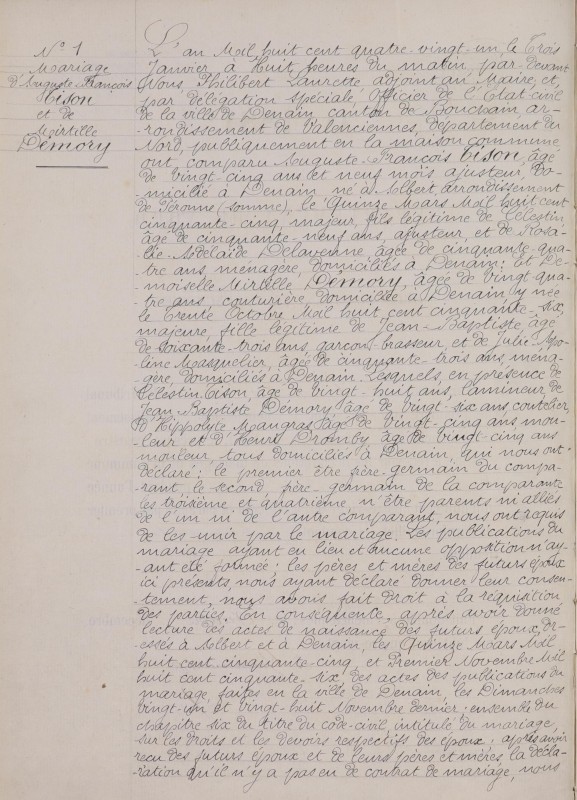 N° 1
Mariage
d'Auguste-François
Bison
et de
Mirtille
Demory
L'an Mil huit cent quatre-vingt-un, le Trois
Janvier à Huit heures du matin, par-devant
Nous Philibert Laurette adjoint au Maire, et,
par délégation spéciale, Officier de l'Etat-civil
de la ville de Denain, canton de Bouchain, ar-
-rondissement de Valenciennes, département du
Nord, publiquement en la maison commune,
ont comparu Auguste-François Bison, âgé
de vingt-cinq ans et neuf mois, ajusteur, do-
-micilié à Denain né à Albert, arrondissement
de Péronne (Somme), le Quinze Mars Mil huit cent
cinquante-cinq, majeur, fils légitime de Célestin,
âgé de cinquante-neuf ans, ajusteur, et de Rosa-
-lie-Adélaïde Delavenne, âgée de cinquante-qua-
-tre ans, ménagère, domiciliés à Denain; et De-
-moiselle Mirtille Demory, âgée de vingt-qua-
-tre ans, couturière, domiciliée à Denain, y née
le Trente Octobre Mil huit cent cinquante-six,
majeure, fille légitime de Jean-Baptiste, âgé
de soixante-trois ans, garçons-brasseur, et de Julie-Apo-
-line Masquelier, âgée de cinquante-trois ans, ména-
-gère, domiciliés à Denain. Lesquels, en présence de
Célestin Bison, âgé de vingt-huit ans, lamineur, de
Jean-Baptiste Demory, âgé de vingt-six ans, coutelier,
d'Hippolyte Mangras, âgé de vingt-cinq ans, mou-
-leur et d'Henri Dromby, âgé de vingt-cinq ans
mouleur, tous domiciliés à Denain, qui nous ont
déclaré: le premier être frère-germain du compa-
-rant, le second, frère-germain de la comparante
les troisième et quatrième n'être parents ni alliés
de l'un ni de l'autre comparant, nous ont requis
de les unir par le mariage. Les publications du
mariage ayant eu lieu et aucune opposition n'ay-
-ant été formée; les pères et mères des futurs époux
ici présents, nous ayant déclaré donner leur consen-
-tement, nous avons fait droit à la réquisition
des parties. En conséquence, après avoir donné
lecture des actes de naissance des futurs époux, dr-
-essés à Albert et à Denain, les Quinze Mars Mil
huit cent cinquante-cinq, et Premier Novembre Mil
huit cent cinquante-six, des actes des publications du
mariage, faites en la ville de Denain, les Dimanches
vingt-un et vingt-huit Novembre dernier; ensemble du
chapitre six du titre du code-civil, intitulé du mariage,
sur les droits et les devoirs respectifs des époux; après avoir
reçu des futurs époux et de leurs pères et mères, la décla-
-ration qu'il n'y a pas eu de contrat de mariage, nous